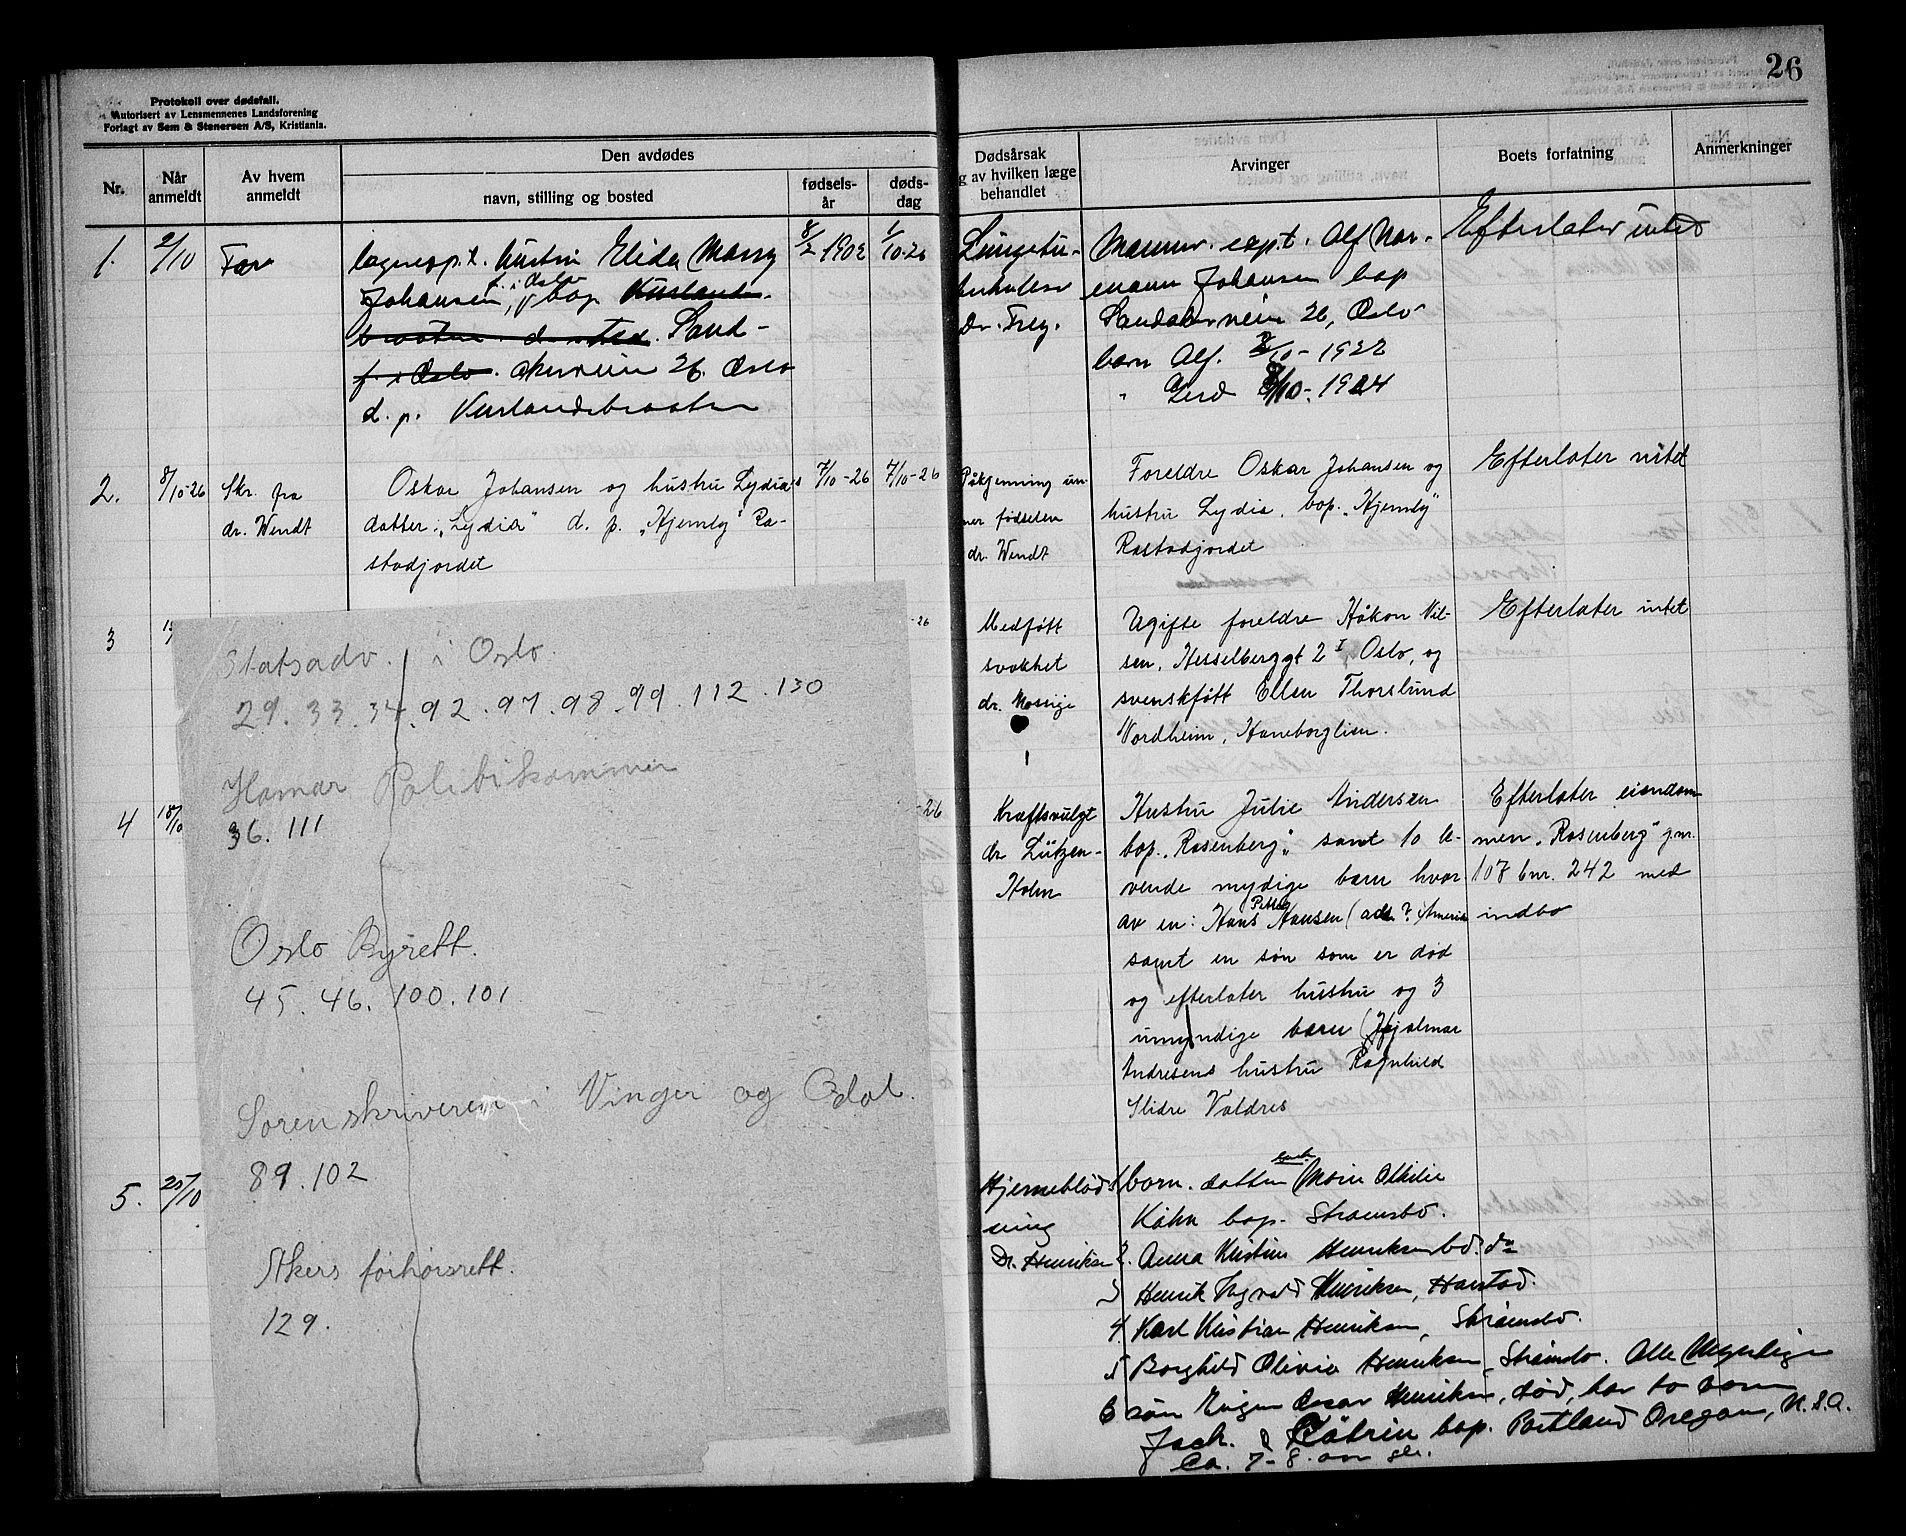 26
Protokoll over dødsfall.
Autorisert av Lensmennenes Landsforening
Forlagt av Sem & Stenersen A/S, Kristiania.
Nr.
Når anmeldt
Av hvem anmeldt
Den avdødes
navn, stilling og bosted
fødselsår
dødsdag
Dødsårsak
g av hvilken læge
behandlet
Arvinger
Boets forfatning
Anmerkninger
1. 2/10 Far
hustru Elida Marry
Johansen, f. i Oslo bop. Kurlands-
braaten Sand-
f. i Oslo. akerveien 26. Oslo
d. p. Kurlandsbraaten
8/2 1902
1/10-26
Lungetu-
berkulose
Dr. Frey.
Mannen. Alf Nor-
mann Johansen bop
Sandakerveien 26, Oslo
barn Alf. 2/10-1922
" Gerd 8/10-1924
Efterlater intet
2. 8/10-26
Skr. fra
dr. Wendt
Oskar Johansen og hustru Lydia's
datter: "Lydia" d. p. "Hjemly" Ra-
stadjordet
7/10-26
7/10-26
Påkjenning un-
ner fødselen
dr. Wendt
Foreldre Oskar Johansen og
hustru Lydia, bop. "Hjemly"
Rastadjordet
Efterlater intet
3
-26
Medføtt
svakhet
dr. Mossige
Ugifte foreldre Håkon Nil-
sen, Hesselberggt 2 I Oslo, og
svenskføtt Ellen Thorslund
Nordheim, Haneborglien.
Efterlater intet
4 18/10
-26
Kræftsvulst
dr. Lützen-
Holm
Hustru Julie Andersen
bop. "Rosenberg", samt 10 le-
vende myndige barn hvor
av en: Hans Petter Hansen (adr. ? Amerika
samt en søn som er død
og efterlater hustru og 3
umyndige barn (Hjalmar
Andresens hustru Ragnhild
Slidre Valdres
Efterlater eiendom
men "Rosenberg" gnr.
107 bnr. 242 med
indbo
5. 25/10
Hjerneblød-
ning
Dr. Henriksen
1 barn. datter Marie Othilie
Kühn bop. Strømsbo.
2. Anna Kristine Henriksen bd. do
3 Henrik Ingvald Henriksen, Harstad.
4. Karl Kristian Henriksen, Strømsbo.
5 Borghild Olivia Henriksen, Strømsbo. Alle Myndige
6 søn Eugen Oscar Henriksen, død, har to barn
Jack. & Cătrin bop. Portland Oregon, U.S.A.
Ca. 7-8. aar gl.
Statsadv. i Oslo.
29. 33. 34. 92. 97. 98. 99. 112. 130
Hamar Politikammer
36. 111
Oslo Byrett.
45. 46. 100. 101
Sorenskriveren i Vinger og Odal.
89. 102
Akers forhørsrett.
129.